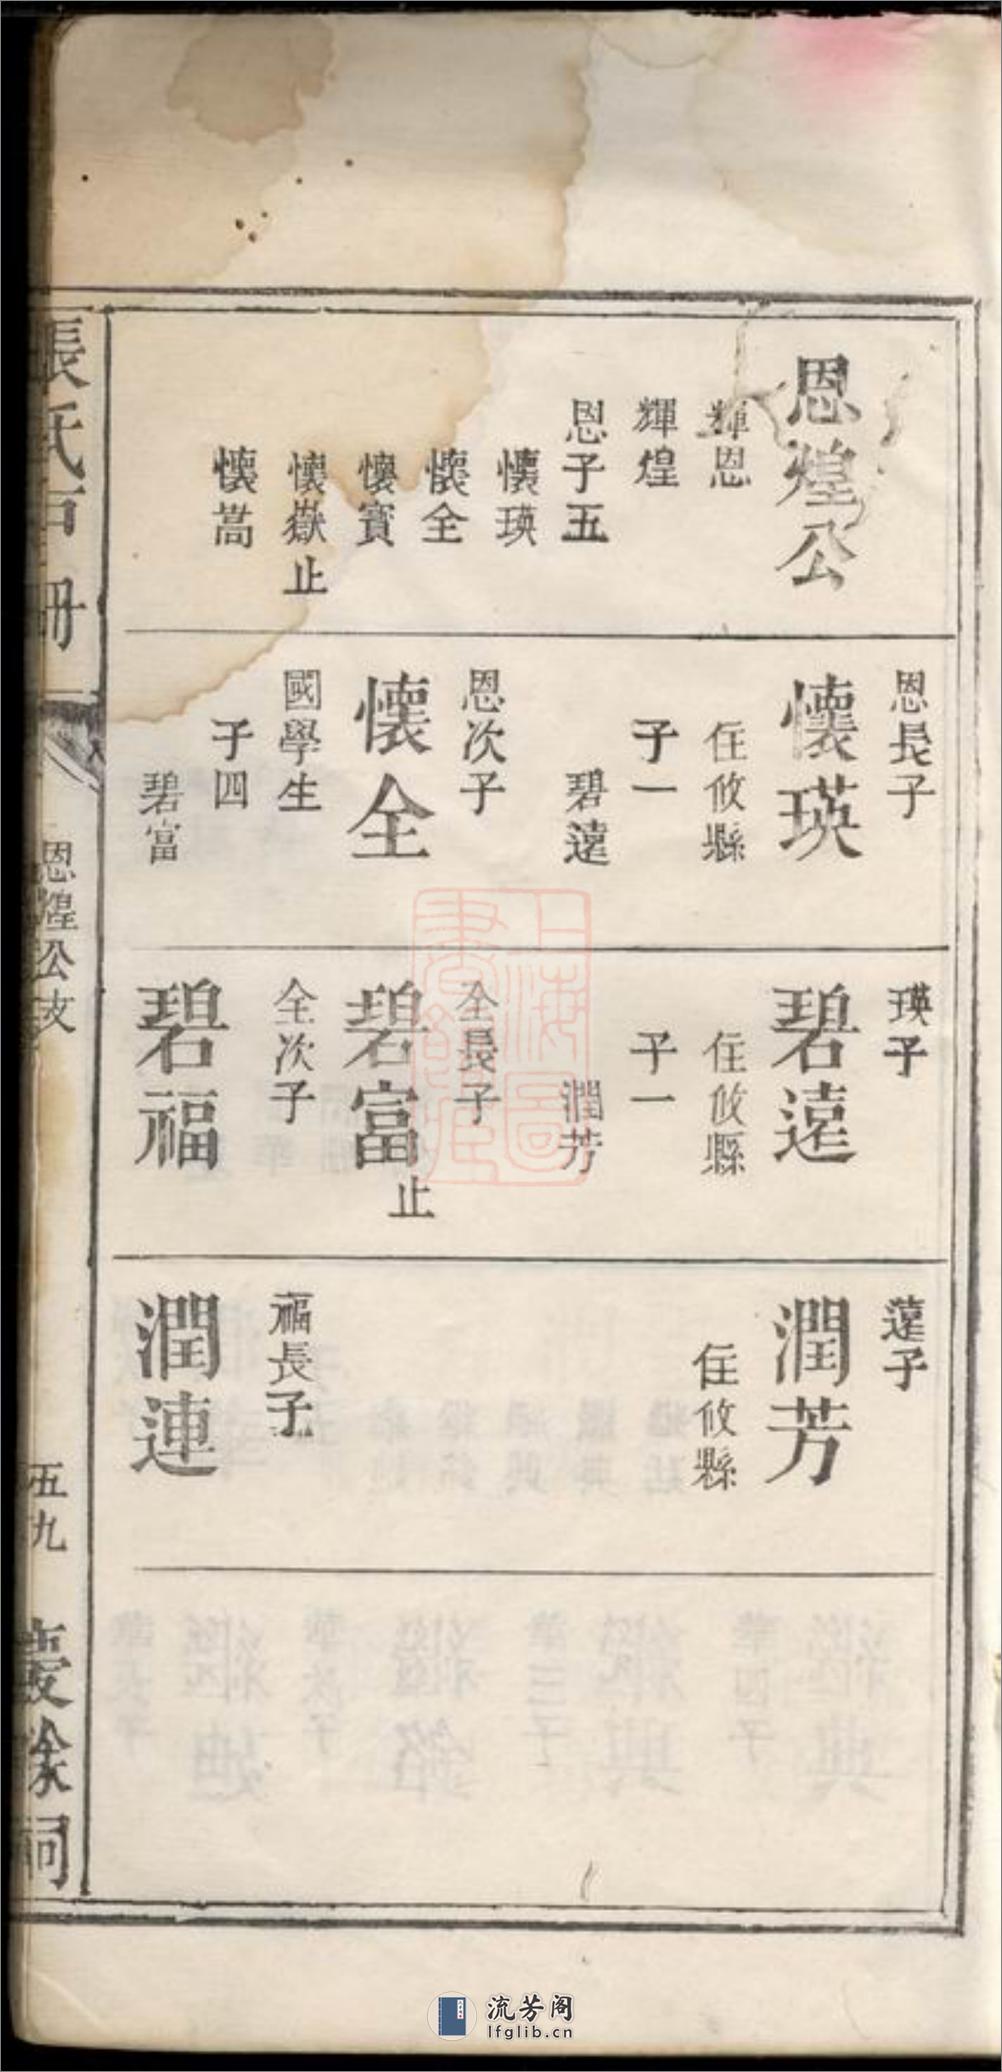 恩煌公
輝恩
輝煌
恩子五
懷瑛
懷全
懷寶
懷嶽止
懷嵩
恩長子
懷瑛
住攸縣
子一
碧遠
恩次子
懷全
國學生
子四
碧富
瑛子
碧遠
住攸縣
子一
潤芳
全長子
碧富止
全次子
碧福
遠子
潤芳
住攸縣
福長子
潤連
張氏戶冊
恩煌公支
五九
祠
上海圖書館藏
流芳阁
lfglib.cn